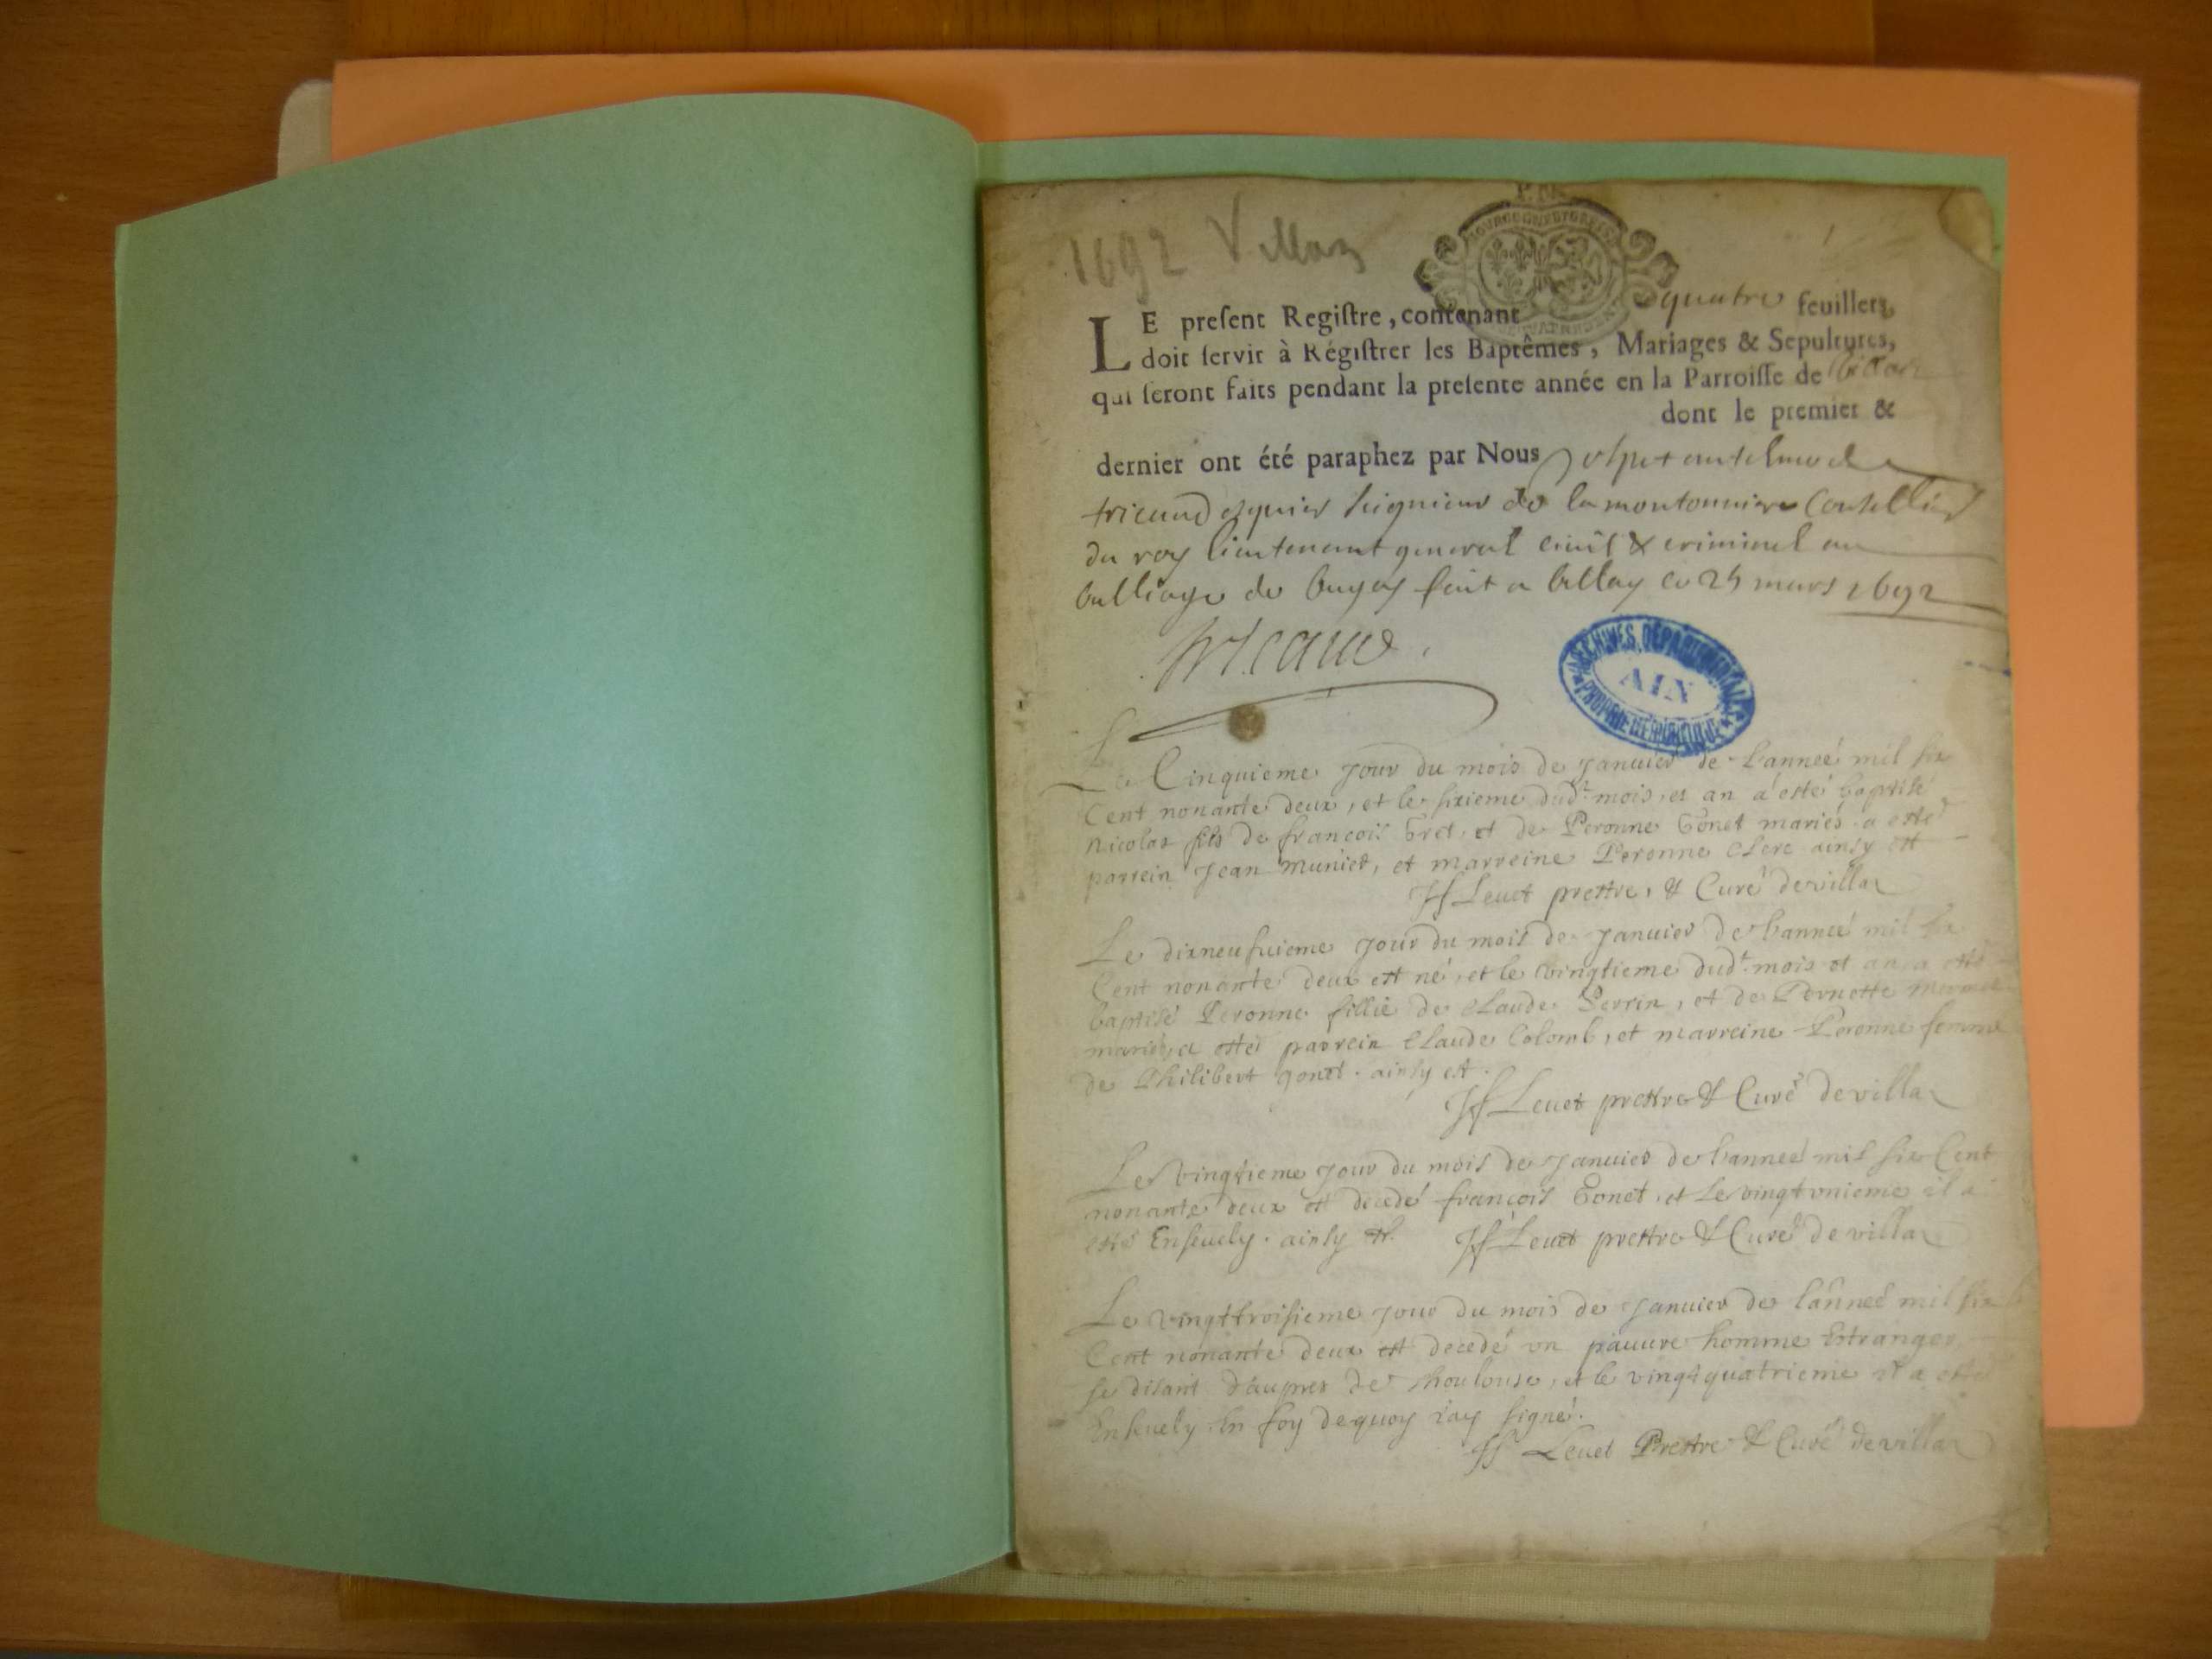 1692 Villaz
1
BOURGOGNE ET BRESSE
LE present Registre, contenant quatre feuillets,
doit servir à Régistrer les Baptêmes, Mariages & Sepultures,
qui seront faits pendant la presente année en la Parroisse de
dont le premier &
dernier ont été paraphez par Nous antelme de
tricaud esquier seigneur de la montonniere Conseillier
du roy lieutenant general civil & criminel au
balliage de bugey fait a belley ce 25 mars 1692
tricaud
ARCHIVES DÉPARTEMENTALES
AIN
PROPRIÉTÉ PUBLIQUE
Le Cinquieme jour du mois de januier de l'anneé mil six
Cent nonante deux, et le sixieme dudt mois, et an a esté baptisé
nicolas fils de francois Gret, et de Peronne Gonet mariés a esté
parrein jean muniet, et marreine Peronne Clerc ainsy est
Leuet prestre, & Curé de villaz
Le dixneufuieme jour du mois de januier de l'anneé mil six
Cent nonante deux est né, et le vingtieme dudt mois et an a esté
baptisé Peronne fillie de Claude Perrin, et de Pernette
mariés, a esté parrein Claude Colomb, et marreine Peronne femme
de Philibert gonet. ainsy est.
Leuet prestre & Curé de villaz
Le vingtieme jour du mois de januier de l'anneé mil six Cent
nonante deux est decedé francois Gonet, et le vingtvnieme il a
esté Enseuely. ainsy est. Leuet prestre & Curé de villaz
Le vingttroisieme jour du mois de januier de l'anneé mil six
Cent nonante deux est decedé vn pauure homme Estranger
se disant d'aupres de Thoulouse, et le vingtquatrieme il a esté
Enseuely. En foy de quoy i'ay signé.
Leuet Prestre & Curé de villaz